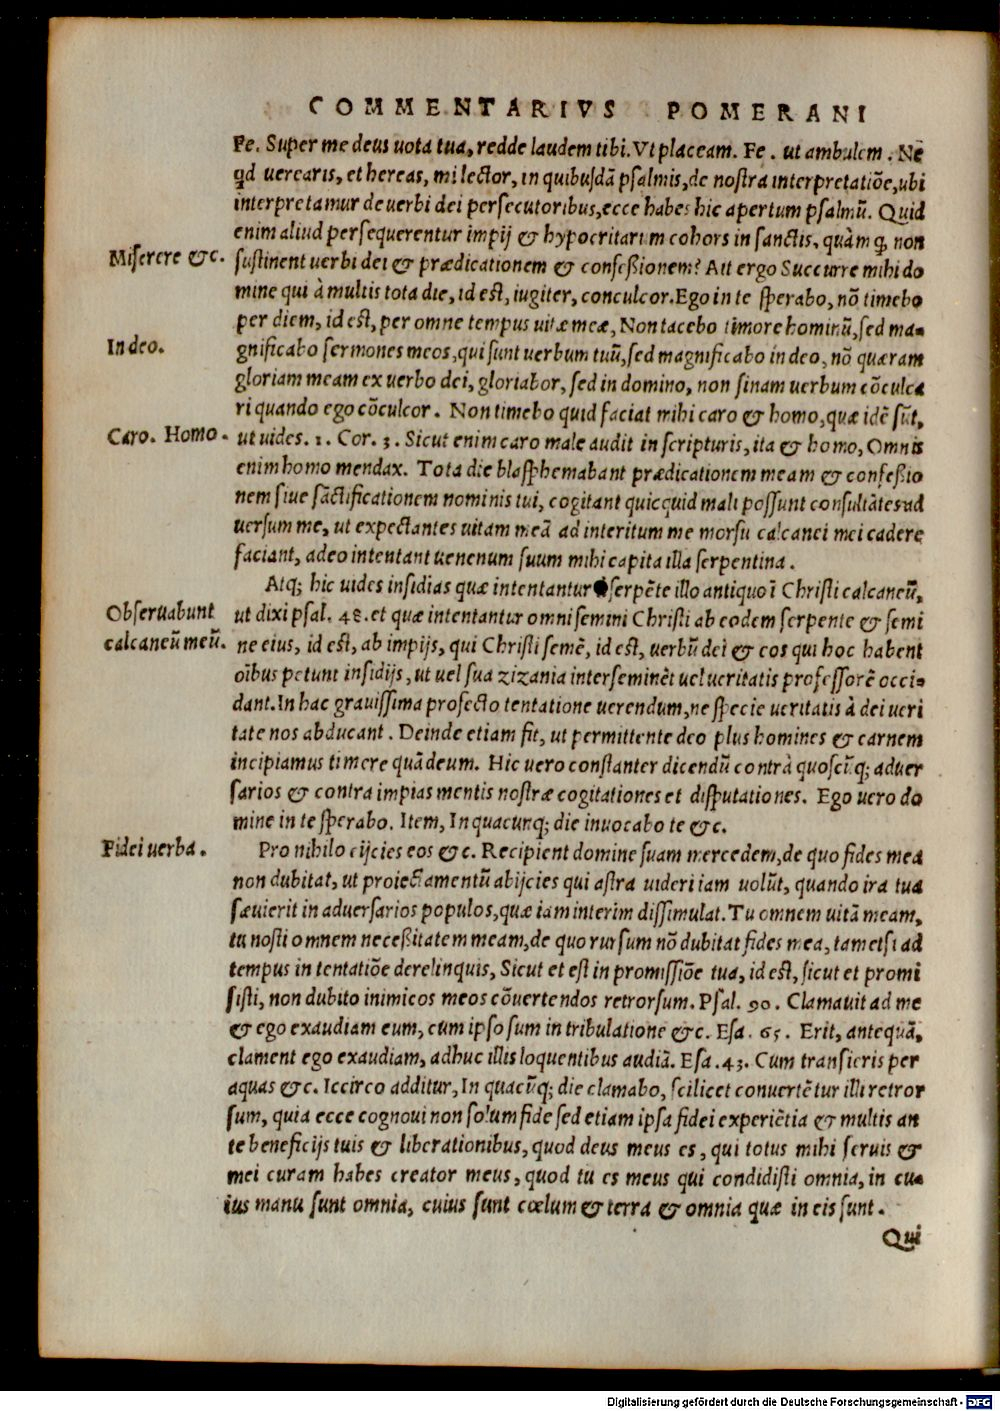 COMMENTARIVS POMERANI
Fe. Super me deus uota tua, redde laudem tibi. Vt placeam. Fe. ut ambulem. Nē
qd uerearis, et hereas, mi lector, in quibusdā psalmis, de nostra interpretatiōe, ubi
interpretamur de uerbi dei persecutoribus, ecce habes hic apertum psalmū. Quid
enim aliud persequerentur impij & hypocritarum cohors in sanctis, quàm q non
Miserere &c.
sustinent uerbi dei & prædicationem & confeßionem? Ait ergo Succurre mihi do
mine qui à multis tota die, id est, iugiter, conculcor. Ego in te sperabo, nō timebo
per diem, id est, per omne tempus uitæ meæ, Non tacebo timore hominū, sed ma-
In deo.
gnificabo sermones meos, qui sunt uerbum tuū, sed magnificabo in deo, nō quæram
gloriam meam ex uerbo dei, gloriabor, sed in domino, non sinam uerbum cōculca
ri quando ego cōculcor. Non timebo quid faciat mihi caro & homo, quæ idē sūt,
Caro. Homo.
ut uides. 1. Cor. 3. Sicut enim caro male audit in scripturis, ita & homo, Omnis
enim homo mendax. Tota die blasphemabant prædicationem meam & confeßio
nem siue sāctificationem nominis tui, cogitant quicquid mali possunt consultātes ad
uersum me, ut expectantes uitam meā ad interitum me morsu calcanei mei cadere
faciant, adeo intentant uenenum suum mihi capita illa serpentina.
Atq; hic uides insidias quæ intentantur serpēte illo antiquo ī Christi calcaneū,
Obseruabunt
calcaneū meū.
ut dixi psal. 48. et quæ intentantur omni semini Christi ab eodem serpente & semi
ne eius, id est, ab impijs, qui Christi semē, id est, uerbū dei & eos qui hoc habent
oībus petunt insidijs, ut uel sua zizania interseminēt uel ueritatis professorē occi-
dant. In hac grauissima profecto tentatione uerendum, ne specie ueritatis à dei ueri
tate nos abducant. Deinde etiam fit, ut permittente deo plus homines & carnem
incipiamus timere quā deum. Hic uero constanter dicendū contrà quoscūq; aduer
sarios & contra impias mentis nostræ cogitationes et disputationes. Ego uero do
mine in te sperabo. Item, In quacunq; die inuocabo te &c.
Fidei uerba.
Pro nihilo eijcies eos &c. Recipient domine suam mercedem, de quo fides mea
non dubitat, ut proiectamentū abijcies qui astra uideri iam uolūt, quando ira tua
sæuierit in aduersarios populos, quæ iam interim dissimulat. Tu omnem uitā meam,
tu nosti omnem neceßitatem meam, de quo rursum nō dubitat fides mea, tametsi ad
tempus in tentatiōe derelinquis, Sicut et est in promissiōe tua, id est, sicut et promi
sisti, non dubito inimicos meos cōuertendos retrorsum. Psal. 90. Clamauit ad me
& ego exaudiam eum, cum ipso sum in tribulatione &c. Esa. 65. Erit, antequā,
clament ego exaudiam, adhuc illis loquentibus audiā. Esa. 43. Cum transieris per
aquas &c. Iccirco additur, In quacūq; die clamabo, scilicet conuertētur illi retror
sum, quia ecce cognoui non solum fide sed etiam ipsa fidei experiētia & multis an
te beneficijs tuis & liberationibus, quod deus meus es, qui totus mihi seruis &
mei curam habes creator meus, quod tu es meus qui condidisti omnia, in cu-
ius manu sunt omnia, cuius sunt cœlum & terra & omnia quæ in eis sunt.
Qui
Digitalisierung gefördert durch die Deutsche Forschungsgemeinschaft - DFG